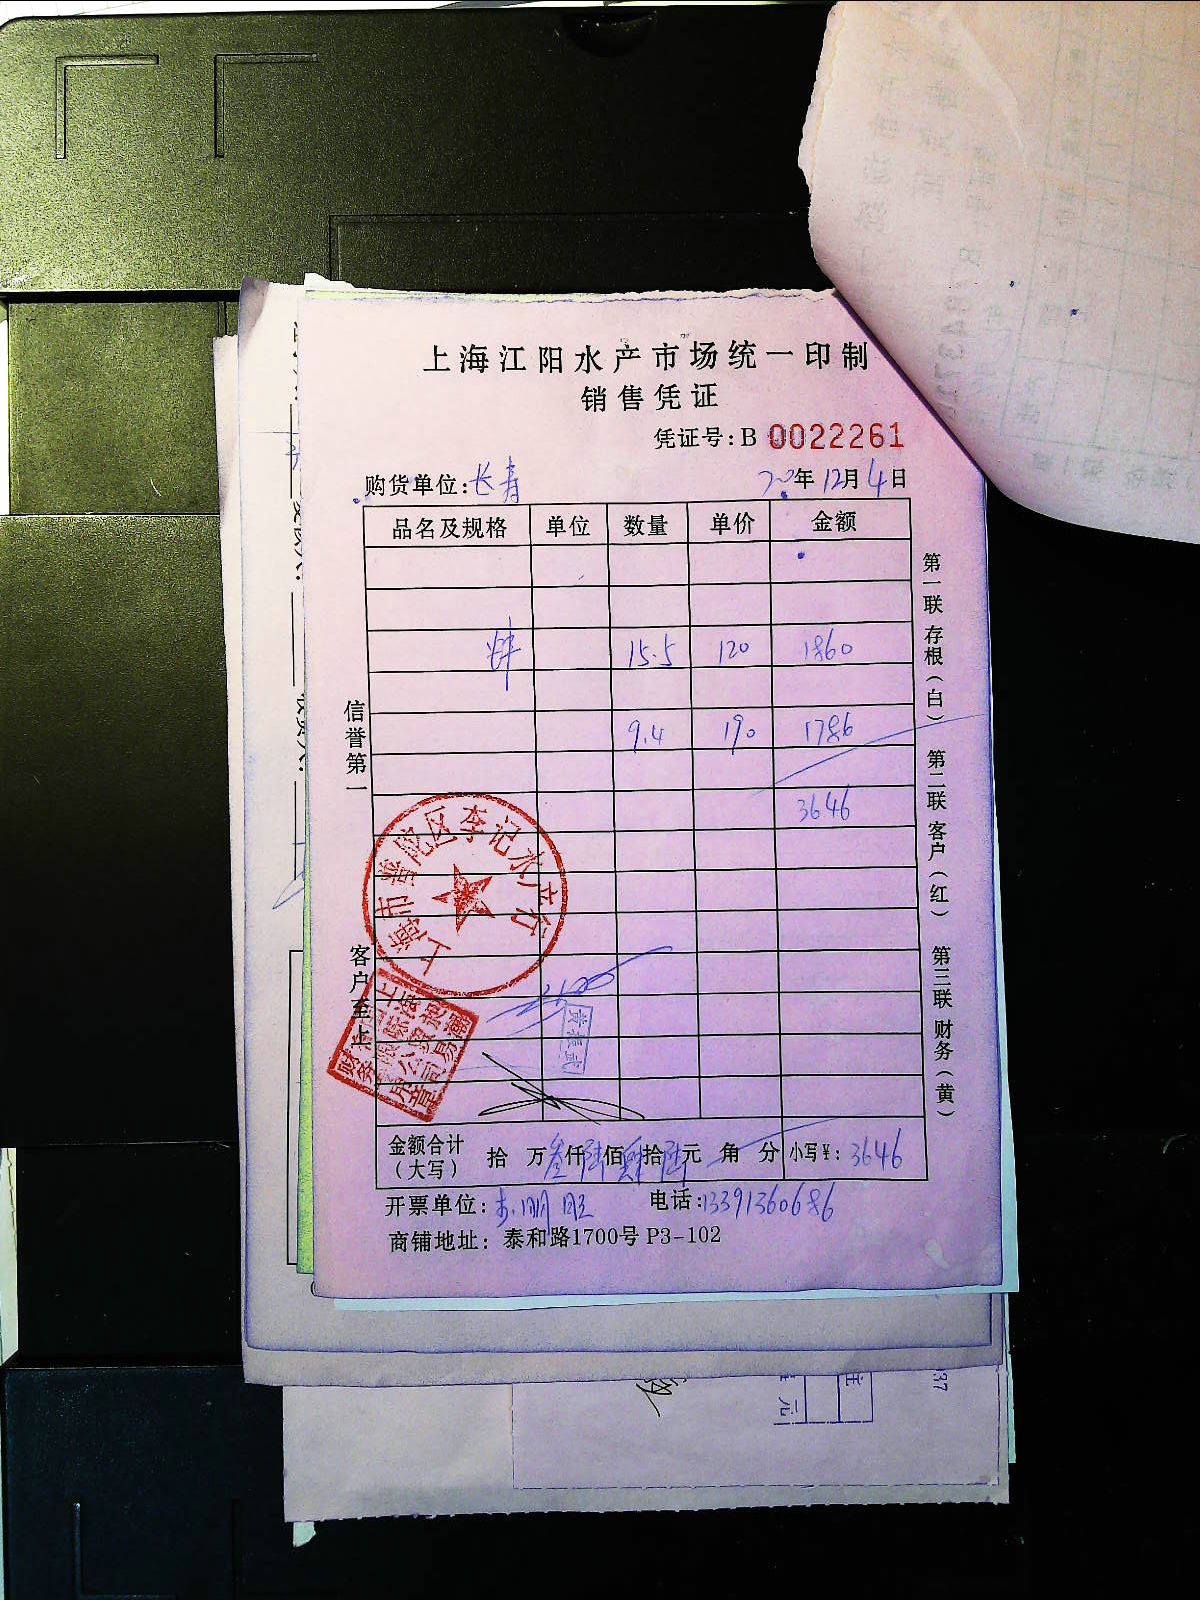 上海江阳水产市场统一印制
销售凭证
凭证号: B 0022261
购货单位: 长寿 20年12月4日
品名及规格 单位 数量 单价 金额
15.5 120 1860
9.4 190 1786
3646
信誉第一
客户至上
第一联 存根（白）
第二联 客户（红）
第三联 财务（黄）
上海市普陀区李记水产行
金额合计（大写） 拾 万叁仟陆佰肆拾陆元 角 分 小写¥: 3646
开票单位: 电话: 13391360686
商铺地址: 泰和路1700号 P3-102